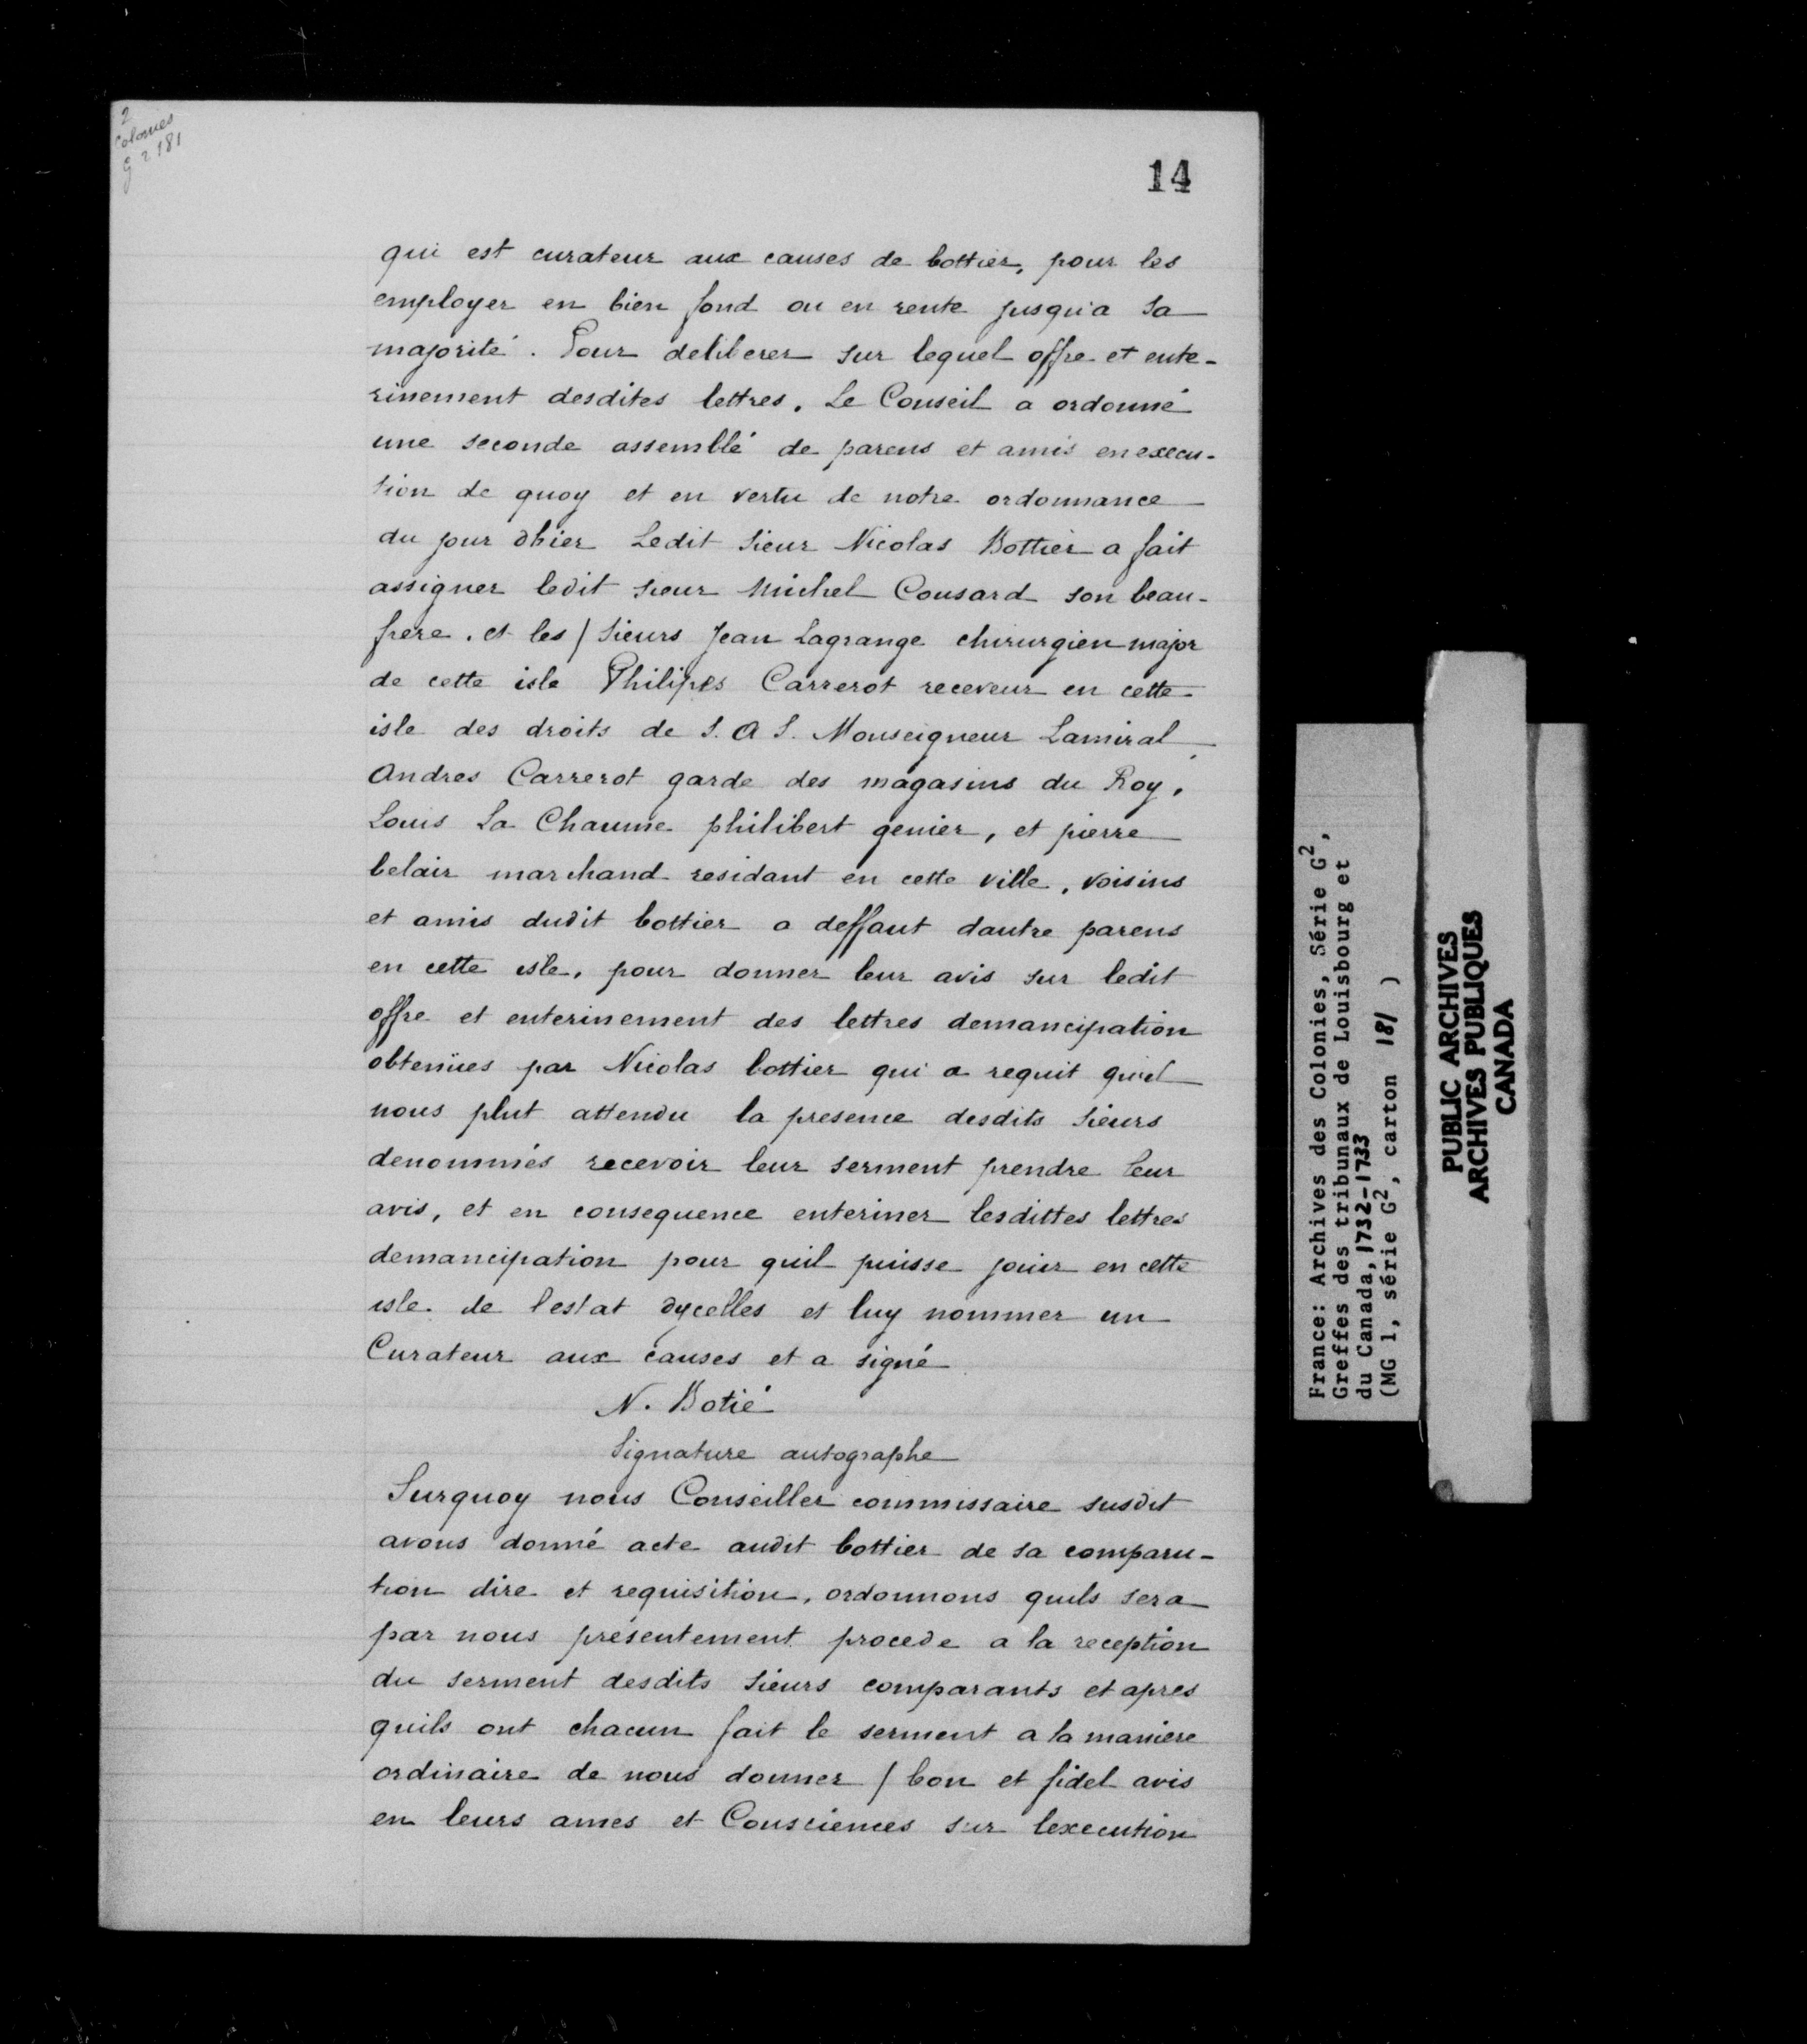 2
Colonies
G 2 181
14
qui est curateur aux causes de bottier, pour les
employer en bien fond ou en rente jusqu'a sa
majorité. Pour deliberer sur lequel offre et ente-
rinement desdites lettres. Le Conseil a ordonné
une seconde assemblé de parens et amis en execu-
tion de quoy et en vertu de notre ordonnance
du jour dhier Ledit sieur Nicolas Bottier a fait
assigner ledit sieur Michel Cousard son beau-
frere. et les / sieurs Jean Lagrange chirurgien major
de cette isle Philipes Carrerot receveur en cette
isle des droits de S. A S. Monseigneur Lamiral
Andres Carrerot garde des magasins du Roy,
Louis La Chaume philibert genier, et pierre
belair marchand residant en cette ville, voisins
et amis dudit bottier a deffaut dautre parens
en cette isle, pour donner leur avis sur ledit
offre et enterinement des lettres demancipation
obtenües par Nicolas bottier qui a requit quil
nous plut attendu la presence desdits sieurs
denommés recevoir leur serment prendre leur
avis, et en consequence enteriner lesdittes lettres
demancipation pour quil puisse jouir en cette
isle de lestat dycelles et luy nommer un
Curateur aux causes et a signé
N. Botié
Signature autographe
Surquoy nous Conseiller commissaire susdit
avons donné acte audit bottier de sa comparu-
tion dire et requisition, ordonnons quils sera
par nous présentement procede a la reception
du serment desdits sieurs comparants et apres
quils ont chacun fait le serment a la maniere
ordinaire de nous donner / bon et fidel avis
en leurs ames et Consciences sur lexecution
France: Archives des Colonies, Série G2,
Greffes des tribunaux de Louisbourg et
du Canada, 1732-1733
(MG 1, série G2, carton 181 )
PUBLIC ARCHIVES
ARCHIVES PUBLIQUES
CANADA